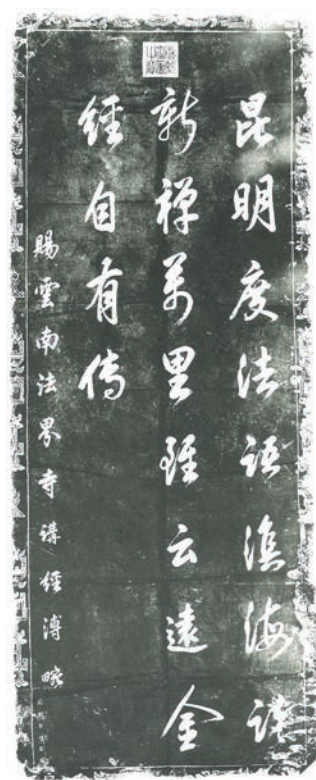 昆明度法語滇海講
新禅萬里雖云遠金
經自有傳
賜雲南法界寺講經溥畹